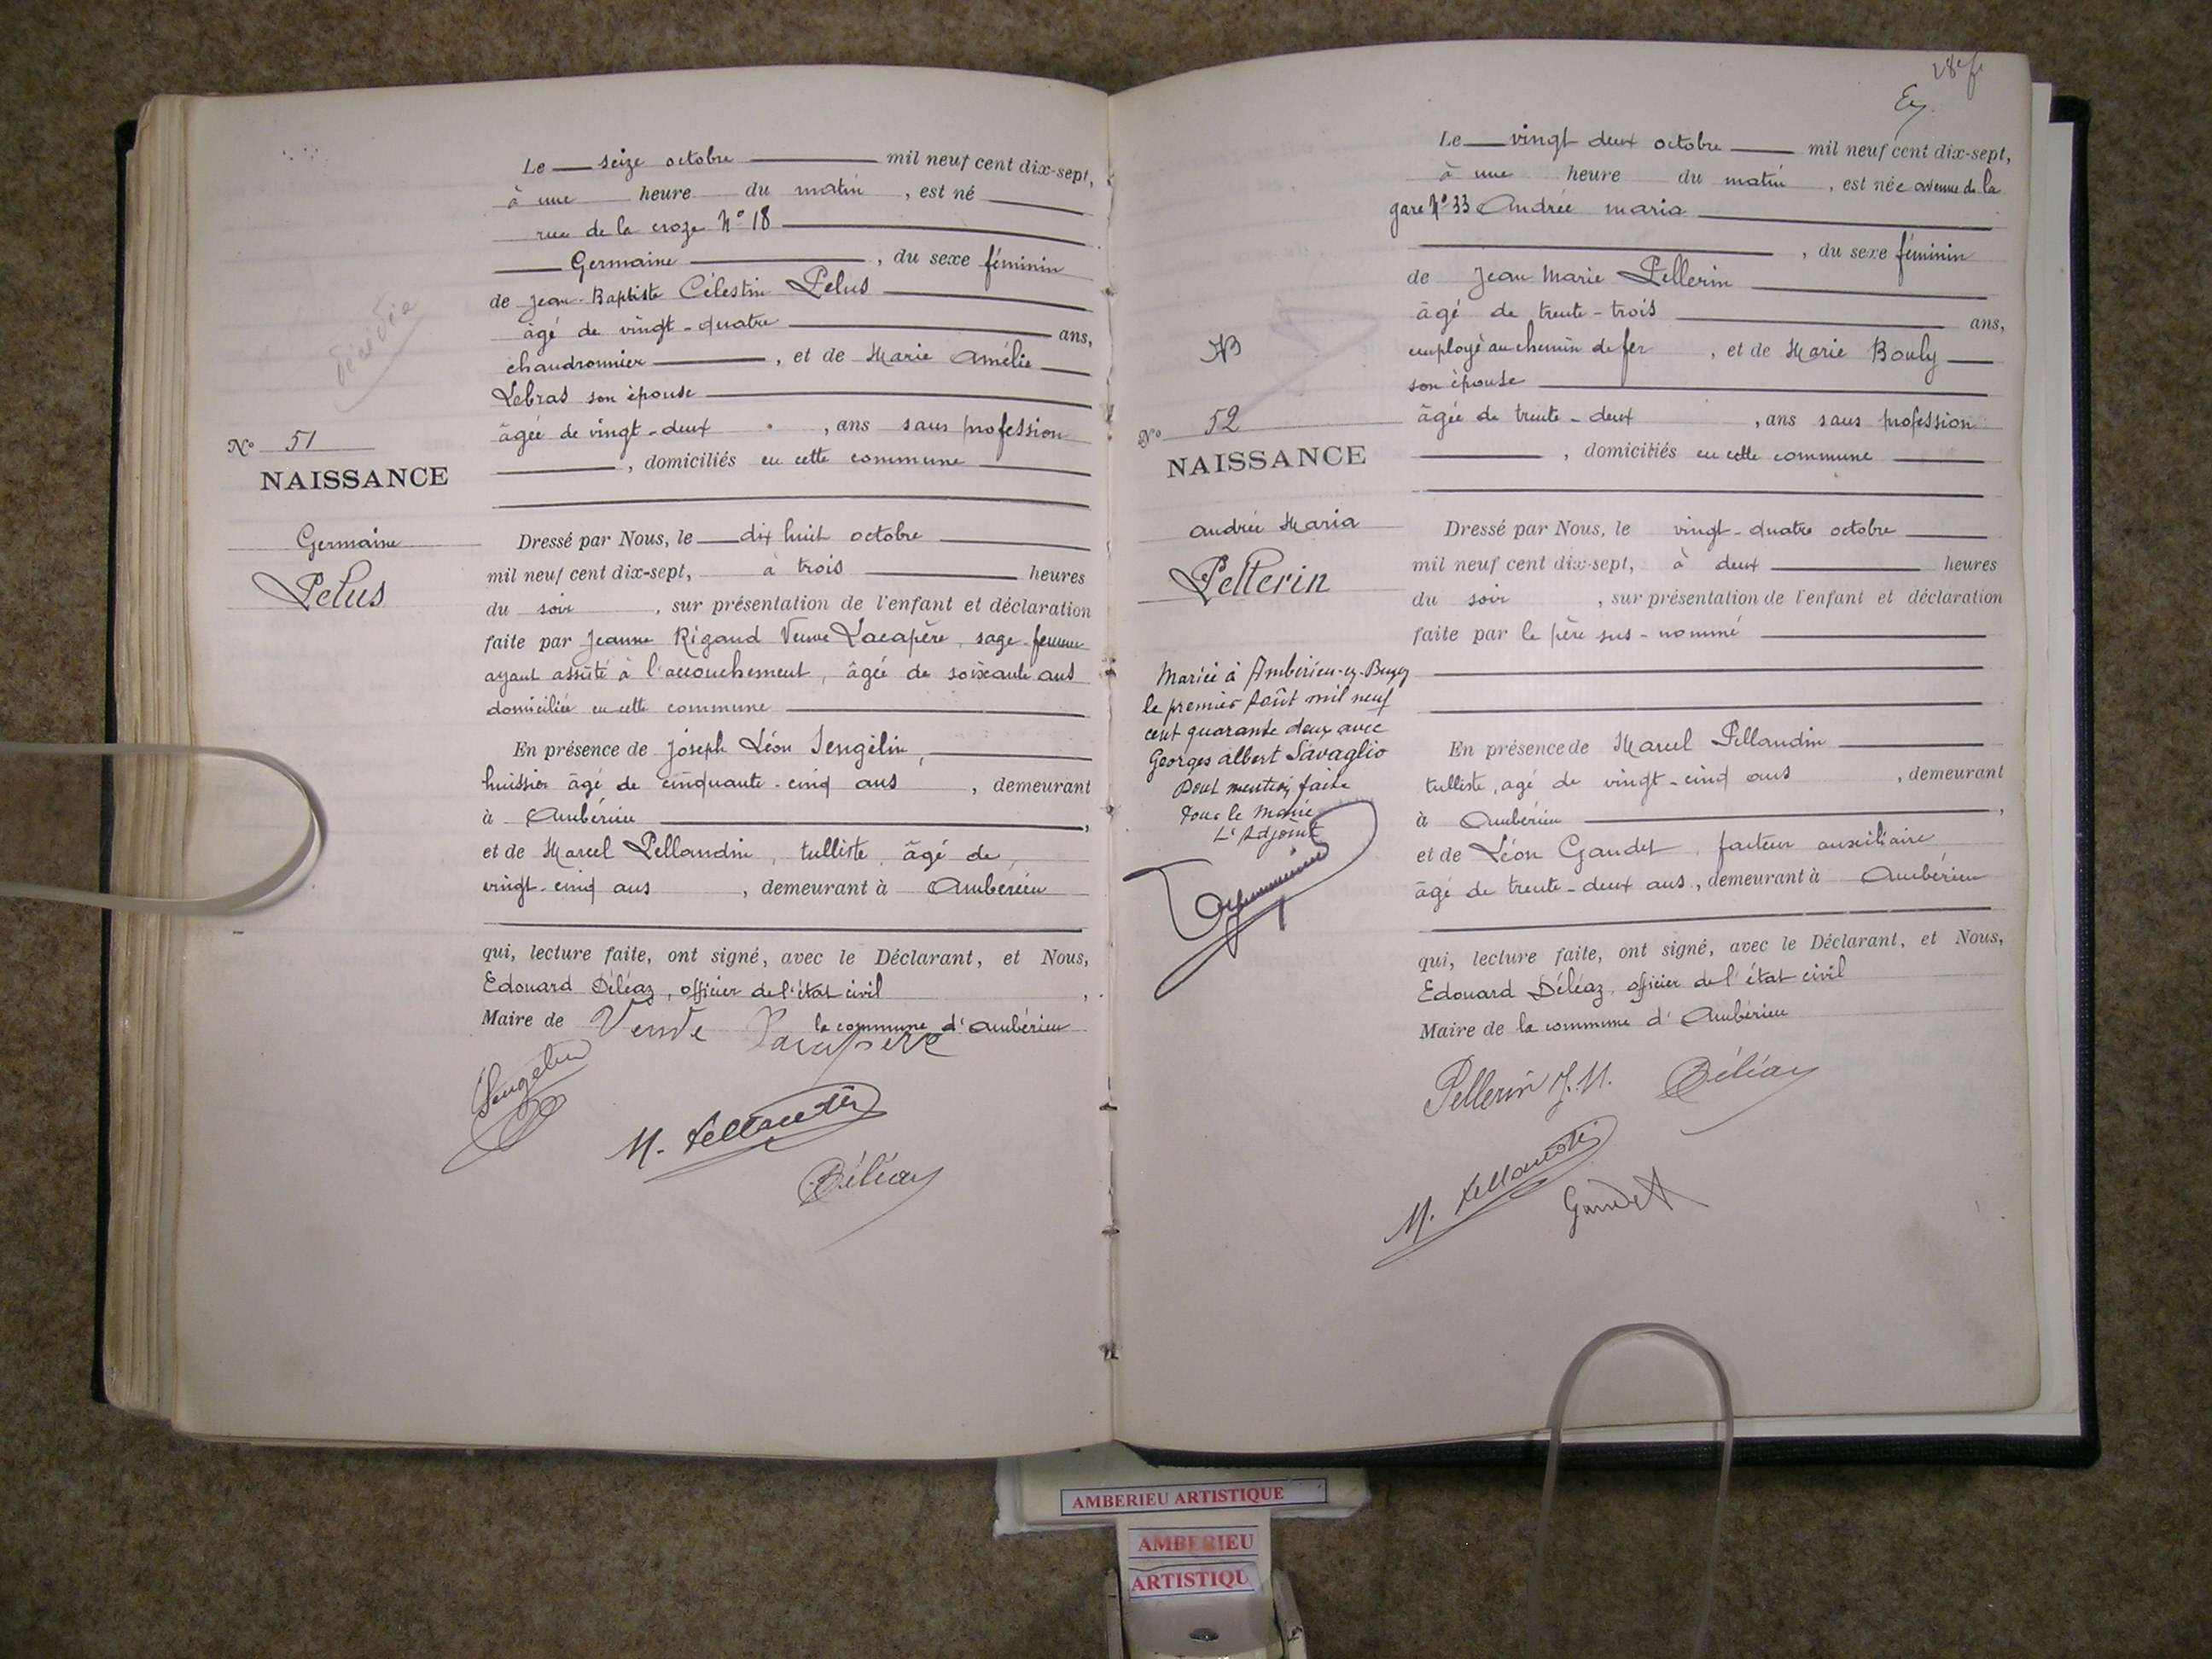 décédée
N° 51
NAISSANCE
Germaine
Pelus
Le seize octobre mil neuf cent dix-sept,
à une heure du matin, est né
rue de la croze N° 18
Germaine, du sexe féminin
de Jean-Baptiste Célestin Pelus
âgé de vingt-quatre ans,
chaudronnier, et de Marie Amélie
Lebras son épouse
âgée de vingt-deux, ans sans profession
, domiciliés en cette commune
Dressé par Nous, le dix huit octobre
mil neuf cent dix-sept, à trois heures
du soir, sur présentation de l'enfant et déclaration
faite par Jeanne Rigaud Veuve Lacapère, sage-femme
ayant assisté à l'accouchement, âgée de soixante ans
domiciliée en cette commune
En présence de Joseph Léon Sengelin,
huissier âgé de cinquante-cinq ans, demeurant
à Ambérieu,
et de Marcel Pellandin, tulliste, âgé de,
vingt-cinq ans, demeurant à Ambérieu
qui, lecture faite, ont signé, avec le Déclarant, et Nous,
Edouard Déléaz, officier de l'état civil,
Maire de la commune d'Ambérieu
Veuve Lacapère
Sengelin
M. Pellandin
Déléaz
Le vingt deux octobre mil neuf cent dix-sept,
à une heure du matin, est née avenue de la
gare N° 33 Andrée Maria
, du sexe féminin
de Jean Marie Pellerin
âgé de trente-trois ans,
employé au chemin de fer, et de Marie Bouly
son épouse
âgée de trente-deux, ans sans profession
, domiciliés en cette commune
N° 52
NAISSANCE
Andrée Maria
Pellerin
Mariée à Ambérieu-en-Bugey
le premier Août mil neuf
cent quarante deux avec
Georges Albert Savaglio
Dont mention faite
Pour le Maire
L'Adjoint
Dressé par Nous, le vingt-quatre octobre
mil neuf cent dix-sept, à deux heures
du soir, sur présentation de l'enfant et déclaration
faite par le père sus-nommé
En présence de Marcel Pellandin
tulliste, âgé de vingt-cinq ans, demeurant
à Ambérieu,
et de Léon Gaudet, facteur auxiliaire
âgé de trente-deux ans, demeurant à Ambérieu
qui, lecture faite, ont signé, avec le Déclarant, et Nous,
Edouard Déléaz, officier de l'état civil
Maire de la commune d'Ambérieu
Pellerin J.M. Déléaz
M. Pellandin
Gaudet
AMBERIEU ARTISTIQUE
AMBERIEU
ARTISTIQU